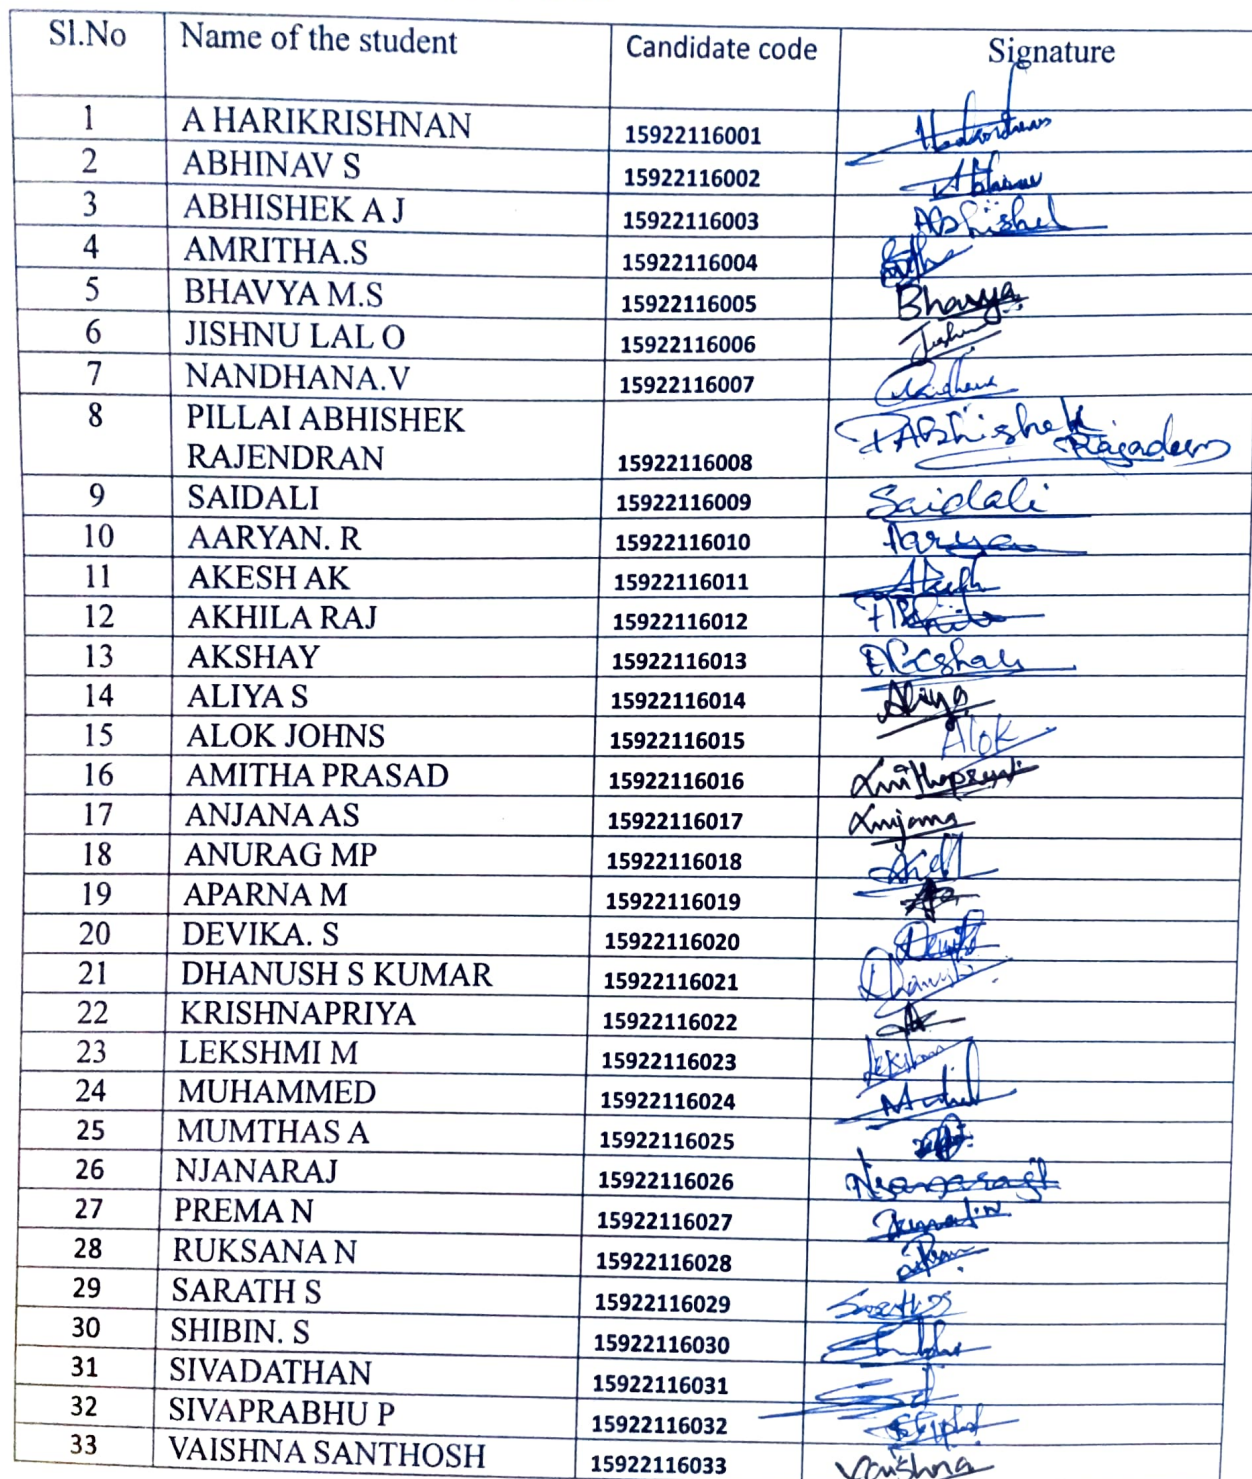 Sl.No Name of the student Candidate code Signature
1 A HARIKRISHNAN 15922116001
2 ABHINAV S 15922116002 Abhinav
3 ABHISHEK A J 15922116003 Abhishek
4 AMRITHA.S 15922116004
5 BHAVYA M.S 15922116005 Bhavya
6 JISHNU LAL O 15922116006 Jishnu
7 NANDHANA.V 15922116007
8 PILLAI ABHISHEK
RAJENDRAN 15922116008 P Abhishek
9 SAIDALI 15922116009 Saidali
10 AARYAN. R 15922116010 Aaryan
11 AKESH AK 15922116011
12 AKHILA RAJ 15922116012
13 AKSHAY 15922116013
14 ALIYA S 15922116014 Aliya
15 ALOK JOHNS 15922116015 Alok
16 AMITHA PRASAD 15922116016
17 ANJANA AS 15922116017 Anjana
18 ANURAG MP 15922116018
19 APARNA M 15922116019
20 DEVIKA. S 15922116020
21 DHANUSH S KUMAR 15922116021 Dhanush
22 KRISHNAPRIYA 15922116022
23 LEKSHMI M 15922116023
24 MUHAMMED 15922116024
25 MUMTHAS A 15922116025
26 NJANARAJ 15922116026 Njanaraj
27 PREMA N 15922116027
28 RUKSANA N 15922116028
29 SARATH S 15922116029
30 SHIBIN. S 15922116030
31 SIVADATHAN 15922116031
32 SIVAPRABHU P 15922116032
33 VAISHNA SANTHOSH 15922116033 Vaishna